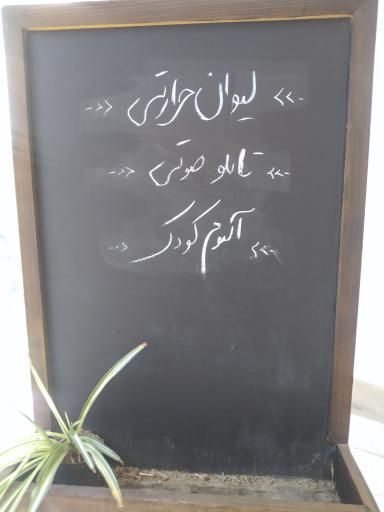 لیوان حرارتی
تابلو صوتی
آلبوم کودک